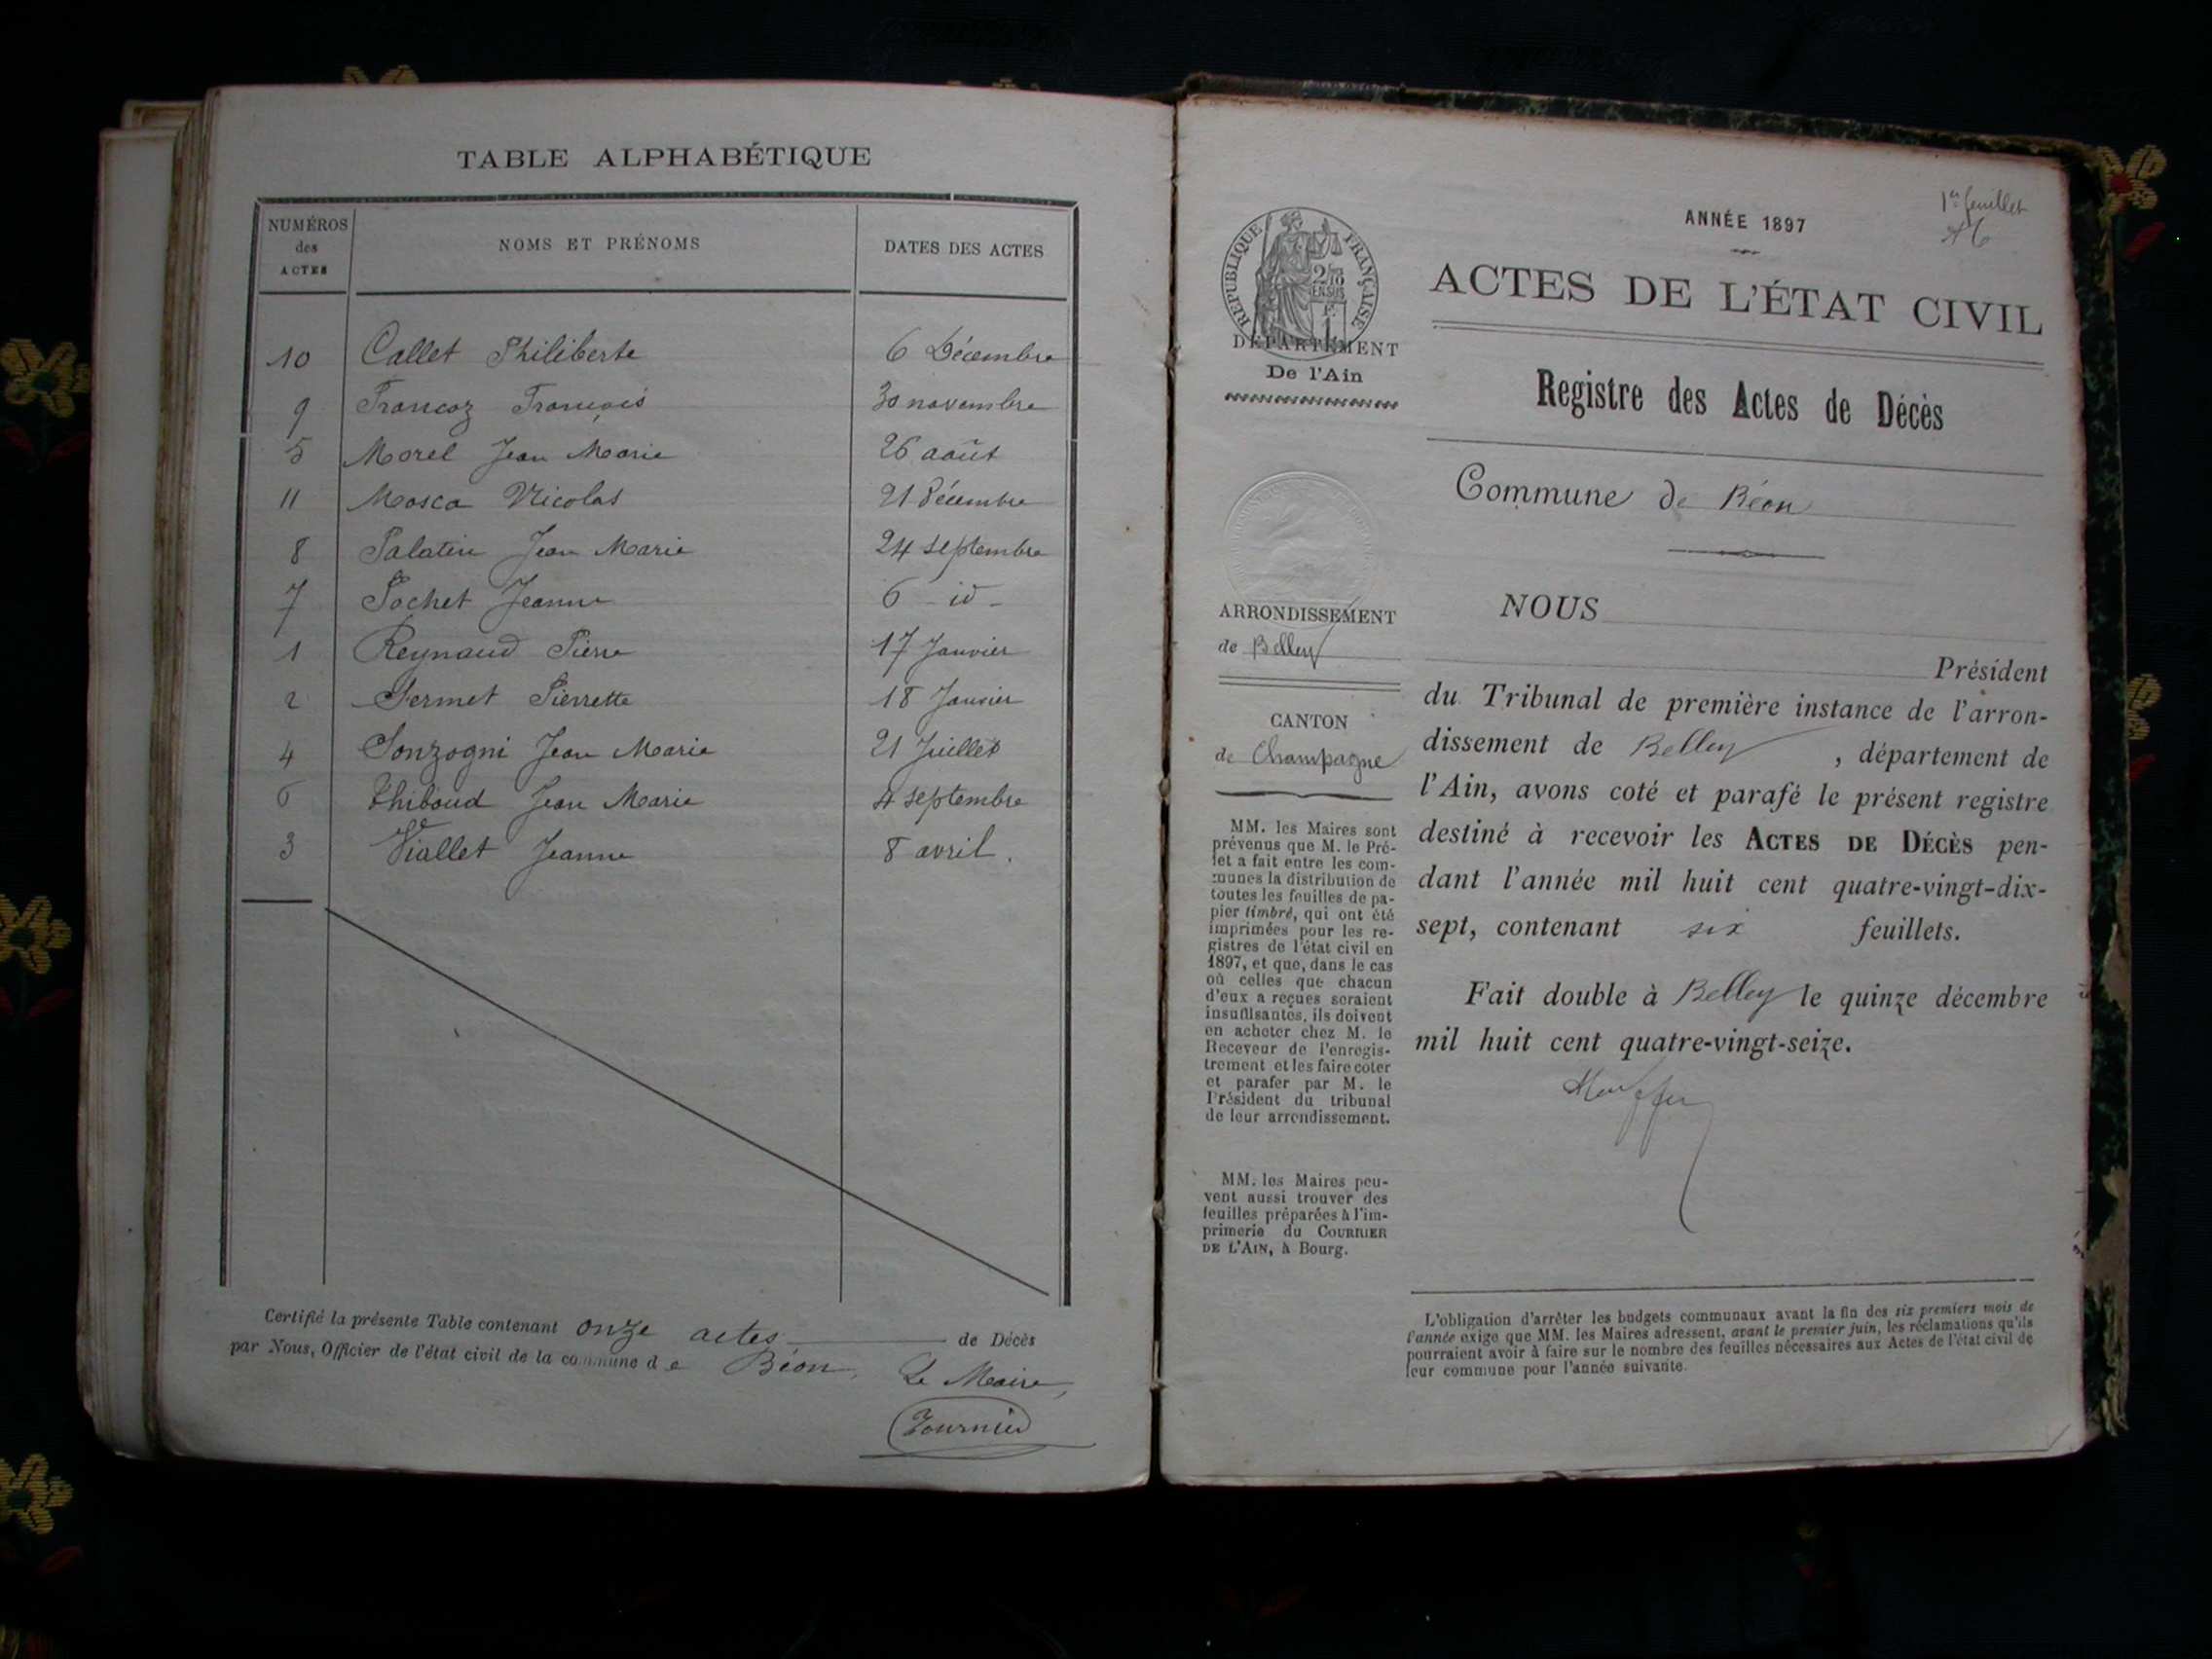 TABLE ALPHABÉTIQUE
NUMÉROS des ACTES NOMS ET PRÉNOMS DATES DES ACTES
10 Callet Philiberte 6 Décembre
9 Francoz François 30 novembre
5 Morel Jean Marie 26 août
11 Mosca Nicolas 21 Décembre
8 Palatin Jean Marie 24 septembre
7 Pochet Jeanne 6 - id -
1 Reynaud Pierre 17 Janvier
2 Sermet Pierrette 18 Janvier
4 Sonzogni Jean Marie 21 Juillet
6 Thiboud Jean Marie 4 septembre
3 Viallet Jeanne 8 avril.
Certifié la présente Table contenant onze actes de Décès
par Nous, Officier de l'état civil de la commune de Béon, Le Maire,
Tournier
1er feuillet
ANNÉE 1897
RÉPUBLIQUE FRANÇAISE
DÉPARTEMENT
De l'Ain
ARRONDISSEMENT
de Belley
CANTON
de Champagne
MM. les Maires sont
prévenus que M. le Pré-
fet a fait entre les com-
munes la distribution de
toutes les feuilles de pa-
pier timbré, qui ont été
imprimées pour les re-
gistres de l'état civil en
1897, et que, dans le cas
où celles que chacun
d'eux a reçues seraient
insuffisantes, ils doivent
en acheter chez M. le
Receveur de l'enregis-
trement et les faire coter
et parafer par M. le
Président du tribunal
de leur arrondissement.
MM. les Maires peu-
vent aussi trouver des
feuilles préparées à l'im-
primerie du COURRIER
DE L'AIN, à Bourg.
ACTES DE L'ÉTAT CIVIL
Registre des Actes de Décès
Commune de Béon
NOUS
Président
du Tribunal de première instance de l'arron-
dissement de Belley, département de
l'Ain, avons coté et parafé le présent registre
destiné à recevoir les ACTES DE DÉCÈS pen-
dant l'année mil huit cent quatre-vingt-dix-
sept, contenant six feuillets.
Fait double à Belley le quinze décembre
mil huit cent quatre-vingt-seize.
L'obligation d'arrêter les budgets communaux avant la fin des six premiers mois de
l'année exige que MM. les Maires adressent, avant le premier juin, les réclamations qu'ils
pourraient avoir à faire sur le nombre des feuilles nécessaires aux Actes de l'état civil de
leur commune pour l'année suivante.